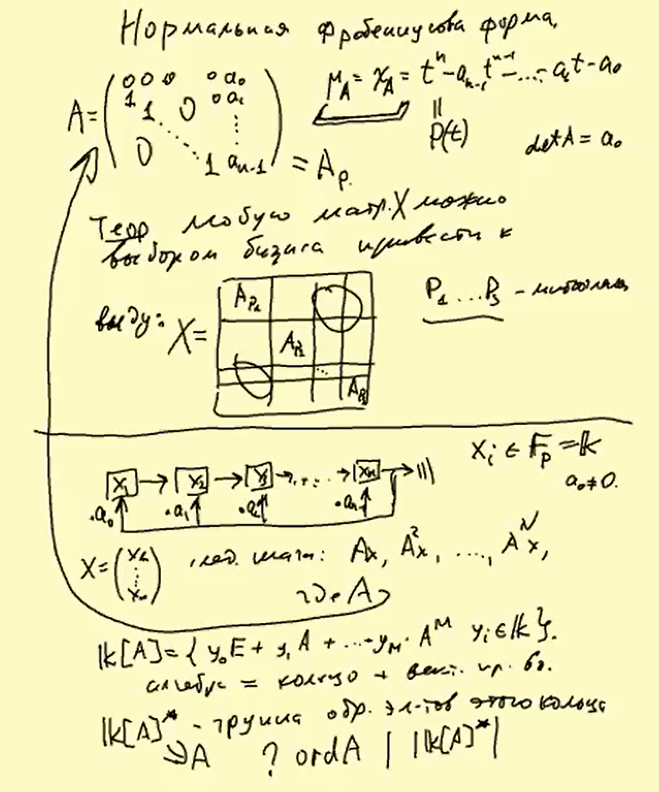 Нормальная Фробениусова форма.
A = ( 0 0 0 0 a₀
1 1 0 0 a₁
0 1 aₙ₋₁ ) = A_P.
μ_A = χ_A = tⁿ - aₙ₋₁tⁿ⁻¹ - ... - a₁t - a₀
||
P(t)
det A = a₀
Теор любую матр. X можно
выбором базиса привести к
виду: X =
A_P₁
A_P₂
A_Pₛ
P₁ ... Pₛ - многочлены
xᵢ ∈ F_p = k
a₀ ≠ 0.
x₁ → x₂ → x₃ → ... → xₙ →
·a₀ ·a₁ ·a₂
X = (x₁ ⋮ xₙ) след. шаги: Ax, A²x, ..., A^N x,
где A
k[A] = { y₀E + y₁A + ... + y_M · A^M yᵢ ∈ k }.
алгебра = кольцо + вект. пр. во.
k[A]* - группа обр. эл-тов этого кольца
∋ A ? ord A | |k[A]*|